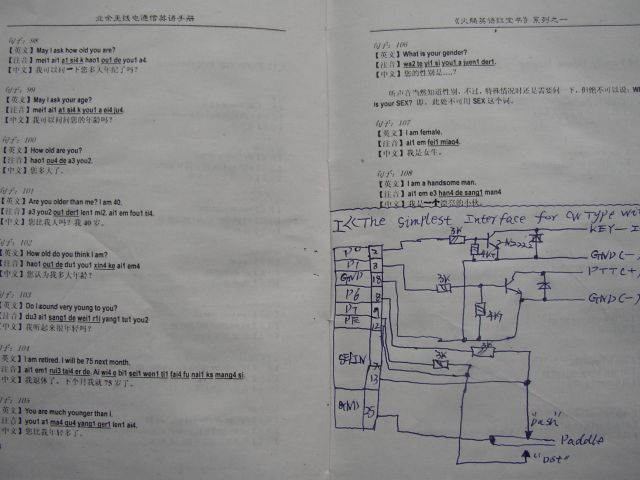 业余无线电通信英语手册
句子: 98
【英文】May I ask how old you are?
【注音】mei1 ai1 a1 si4 k hao1 ou1 de you1 a4.
【中文】我可以问一下您多大年纪了吗?
句子: 99
【英文】May I ask your age?
【注音】mei1 ai1 a1 si4 k you1 a ei4 ju4.
【中文】我可以问问您的年龄吗?
句子: 100
【英文】How old are you?
【注音】hao1 ou4 de a3 you2.
【中文】您多大了。
句子: 101
【英文】Are you older than me? I am 40.
【注音】a3 you2 out1 der1 len1 mi2. ai1 em fou1 ti4.
【中文】您比我大吗? 我 40 岁。
句子: 102
【英文】How old do you think I am?
【注音】hao1 ou1 de du1 you1 xin4 ke ai1 em4
【中文】您认为我多大年龄?
句子: 103
【英文】Do I sound very young to you?
【注音】du3 ai1 sang1 de wei1 ri1 yang1 tu1 you2
【中文】我听起来很年轻吗?
句子: 104
【英文】I am retired. I will be 75 next month.
【注音】ai1 em1 rui3 tai4 er de. Ai wi4 o bi1 sei1 wen1 ti1 fai4 fu nai1 ks mang4 si.
【中文】我退休了, 下个月我就 75 岁了。
句子: 105
【英文】You are much younger than I.
【注音】you1 a1 ma4 qu4 yang1 ger1 len1 ai4.
【中文】您比我年轻多了。
《火腿英语红宝书》系列之一
句子: 106
【英文】What is your gender?
【注音】wa2 te yi1 si you1 a juen1 der1.
【中文】您的性别是....?
听声音当然知道性别, 不过, 特殊情况时还是需要问一下, 但绝不可以说:
is your SEX? 即, 此处不可用 SEX 这个词。
句子: 107
【英文】I am female.
【注音】ai1 em fei1 miao4.
【中文】我是女生。
句子: 108
【英文】I am a handsome man.
【注音】ai1 em e3 han4 de sang1 man4
【中文】我是一个漂亮的小伙。
The Simplest Interface for CW Type
3K
KEY-I
4K7
GND(-)
P0 2
P1 3
GND 18
P6 8
P7 9
PE 12
3K
PTT(+)
4K7
GND(-)
3K
3K
SELIN 17
13
GND 25
"Dash"
Paddle
"Dot"